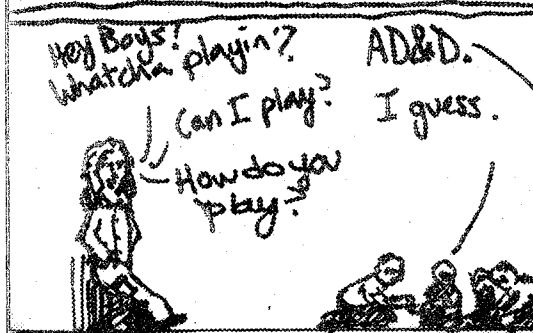 Hey Boys!
Whatcha playin'?
Can I play?
How do you
play?
AD&D.
I guess.